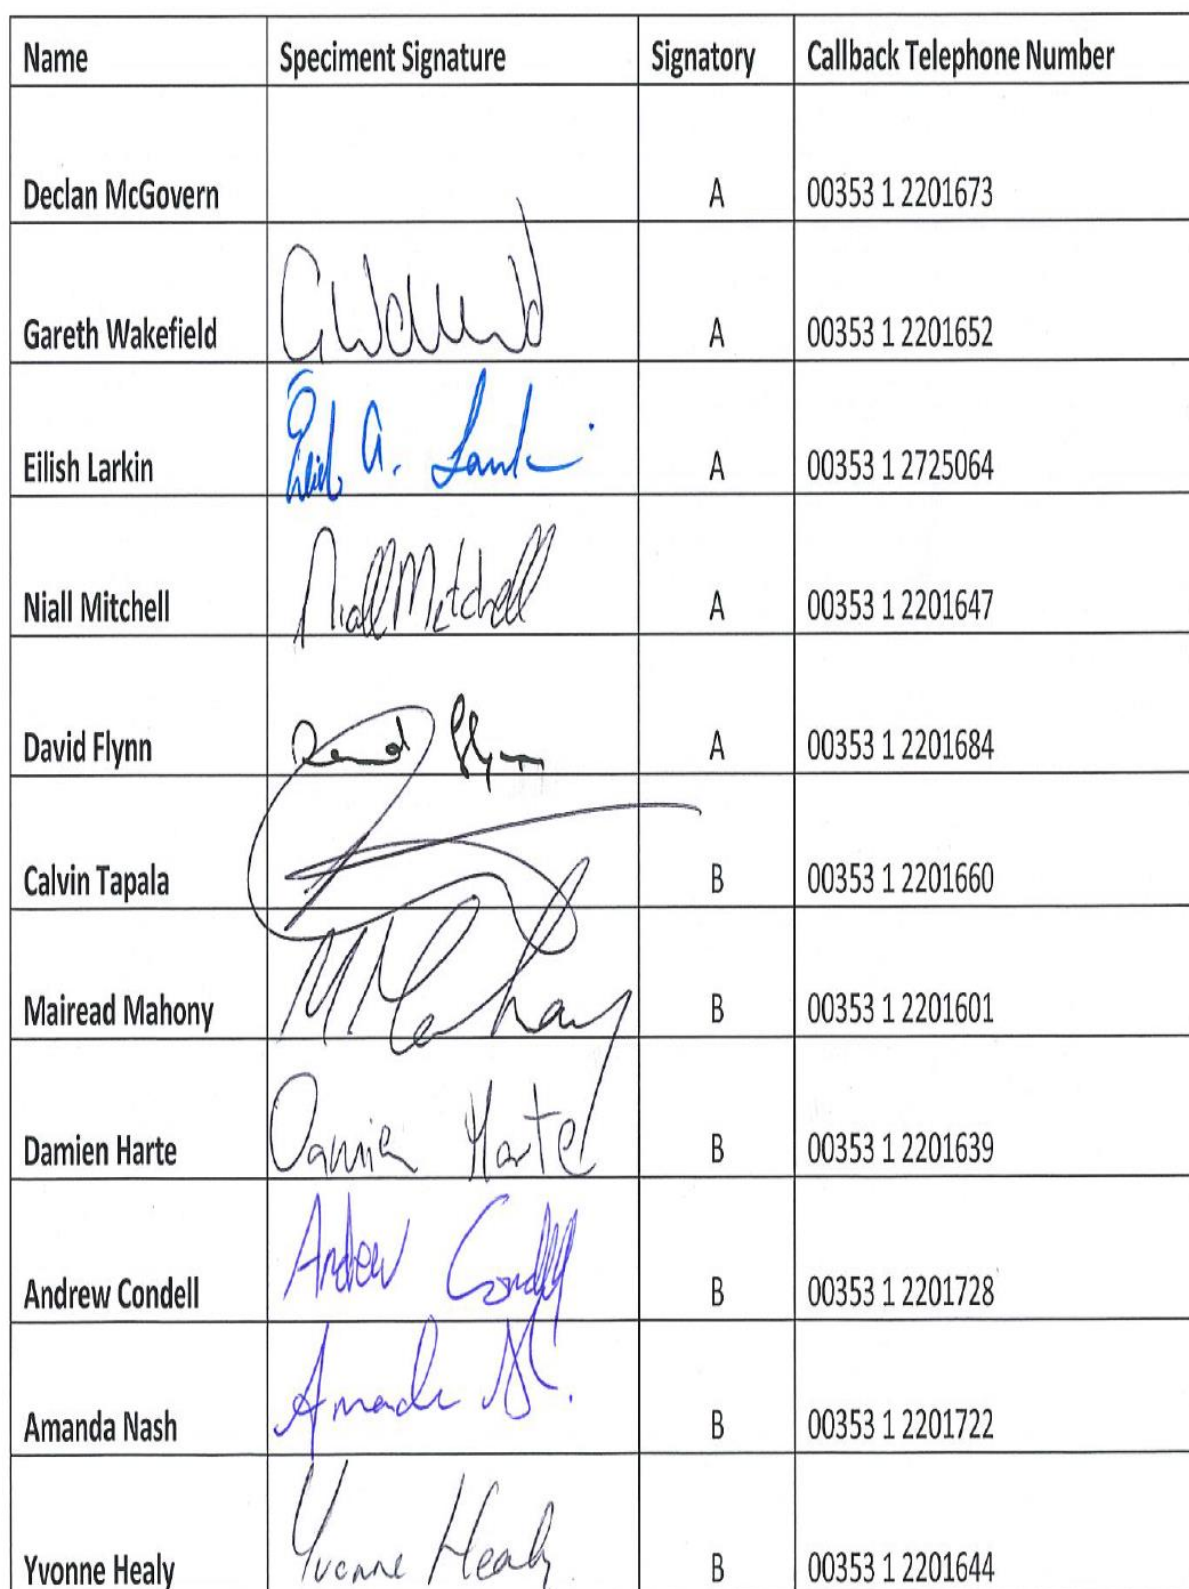 Name Speciment Signature Signatory Callback Telephone Number
Declan McGovern A 00353 1 2201673
Gareth Wakefield A 00353 1 2201652
Eilish Larkin Eilish A. Larkin A 00353 1 2725064
Niall Mitchell Niall Mitchell A 00353 1 2201647
David Flynn David Flynn A 00353 1 2201684
Calvin Tapala B 00353 1 2201660
Mairead Mahony B 00353 1 2201601
Damien Harte Damien Harte B 00353 1 2201639
Andrew Condell Andrew Condell B 00353 1 2201728
Amanda Nash Amanda B 00353 1 2201722
Yvonne Healy Yvonne Healy B 00353 1 2201644